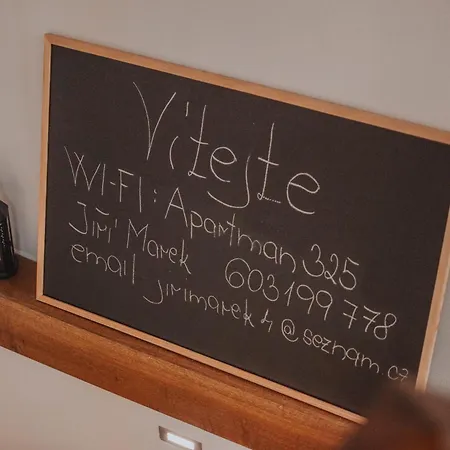 Vítejte
WI-FI: Apartman 325
Jiří Marek 603 199 778
email jirimarek4@seznam.cz